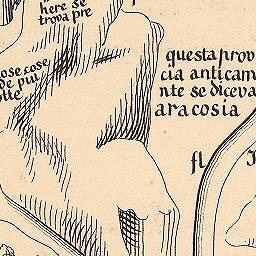 here se
trova pre
ose cose
de piu
otte
questa prov
cia anticam
nte se diceva
aracosia
fl